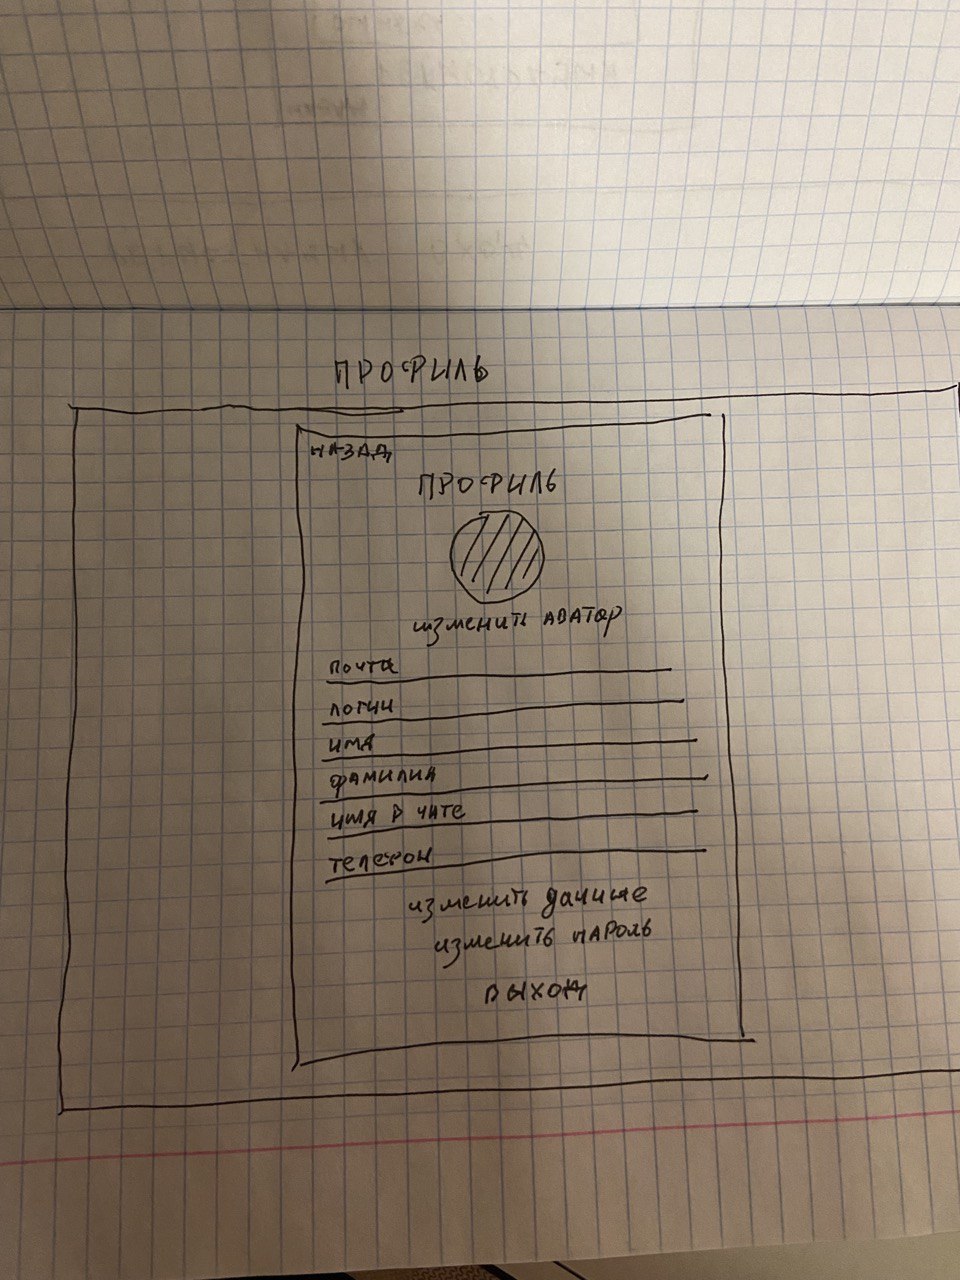 ПРОФИЛЬ
НАЗАД
ПРОФИЛЬ
изменить аватар
почта
логин
имя
фамилия
имя в чате
телефон
изменить данные
изменить пароль
выход